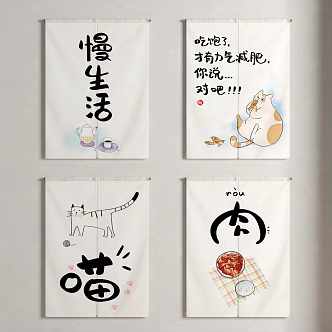 慢生活
吃饱了,
才有力气减肥,
你说...
对吧!!!
喵
ròu
肉